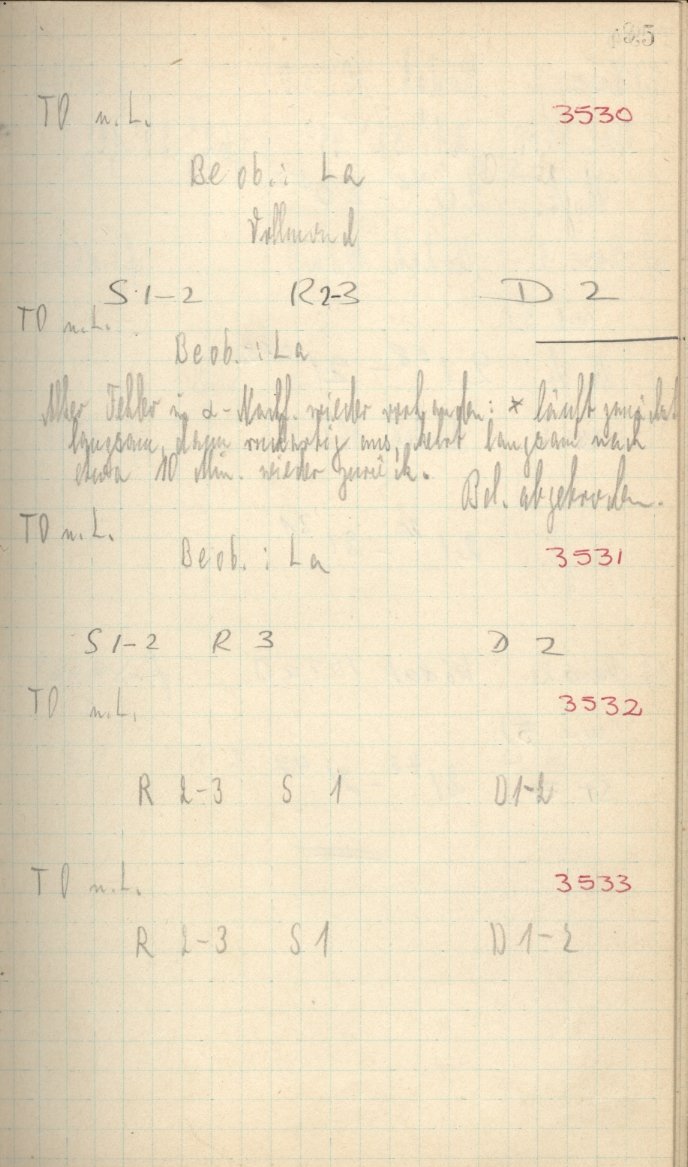 95
TD n.L. 3530
Beob.: La
Vollmond
S 1-2 R 2-3 D 2
TD n.L.
Beob.: La
Alter Fehler in α-Nachf. wieder vorhanden: * läuft zunächst
langsam, dann ruckartig aus, kehrt langsam nach
etwa 10 Min. wieder zurück.
Bel. abgebrochen.
TD n.L.
Beob.: La 3531
S 1-2 R 3 D 2
TD n.L. 3532
R 2-3 S 1 D 1-2
TD n.L. 3533
R 2-3 S 1 D 1-2